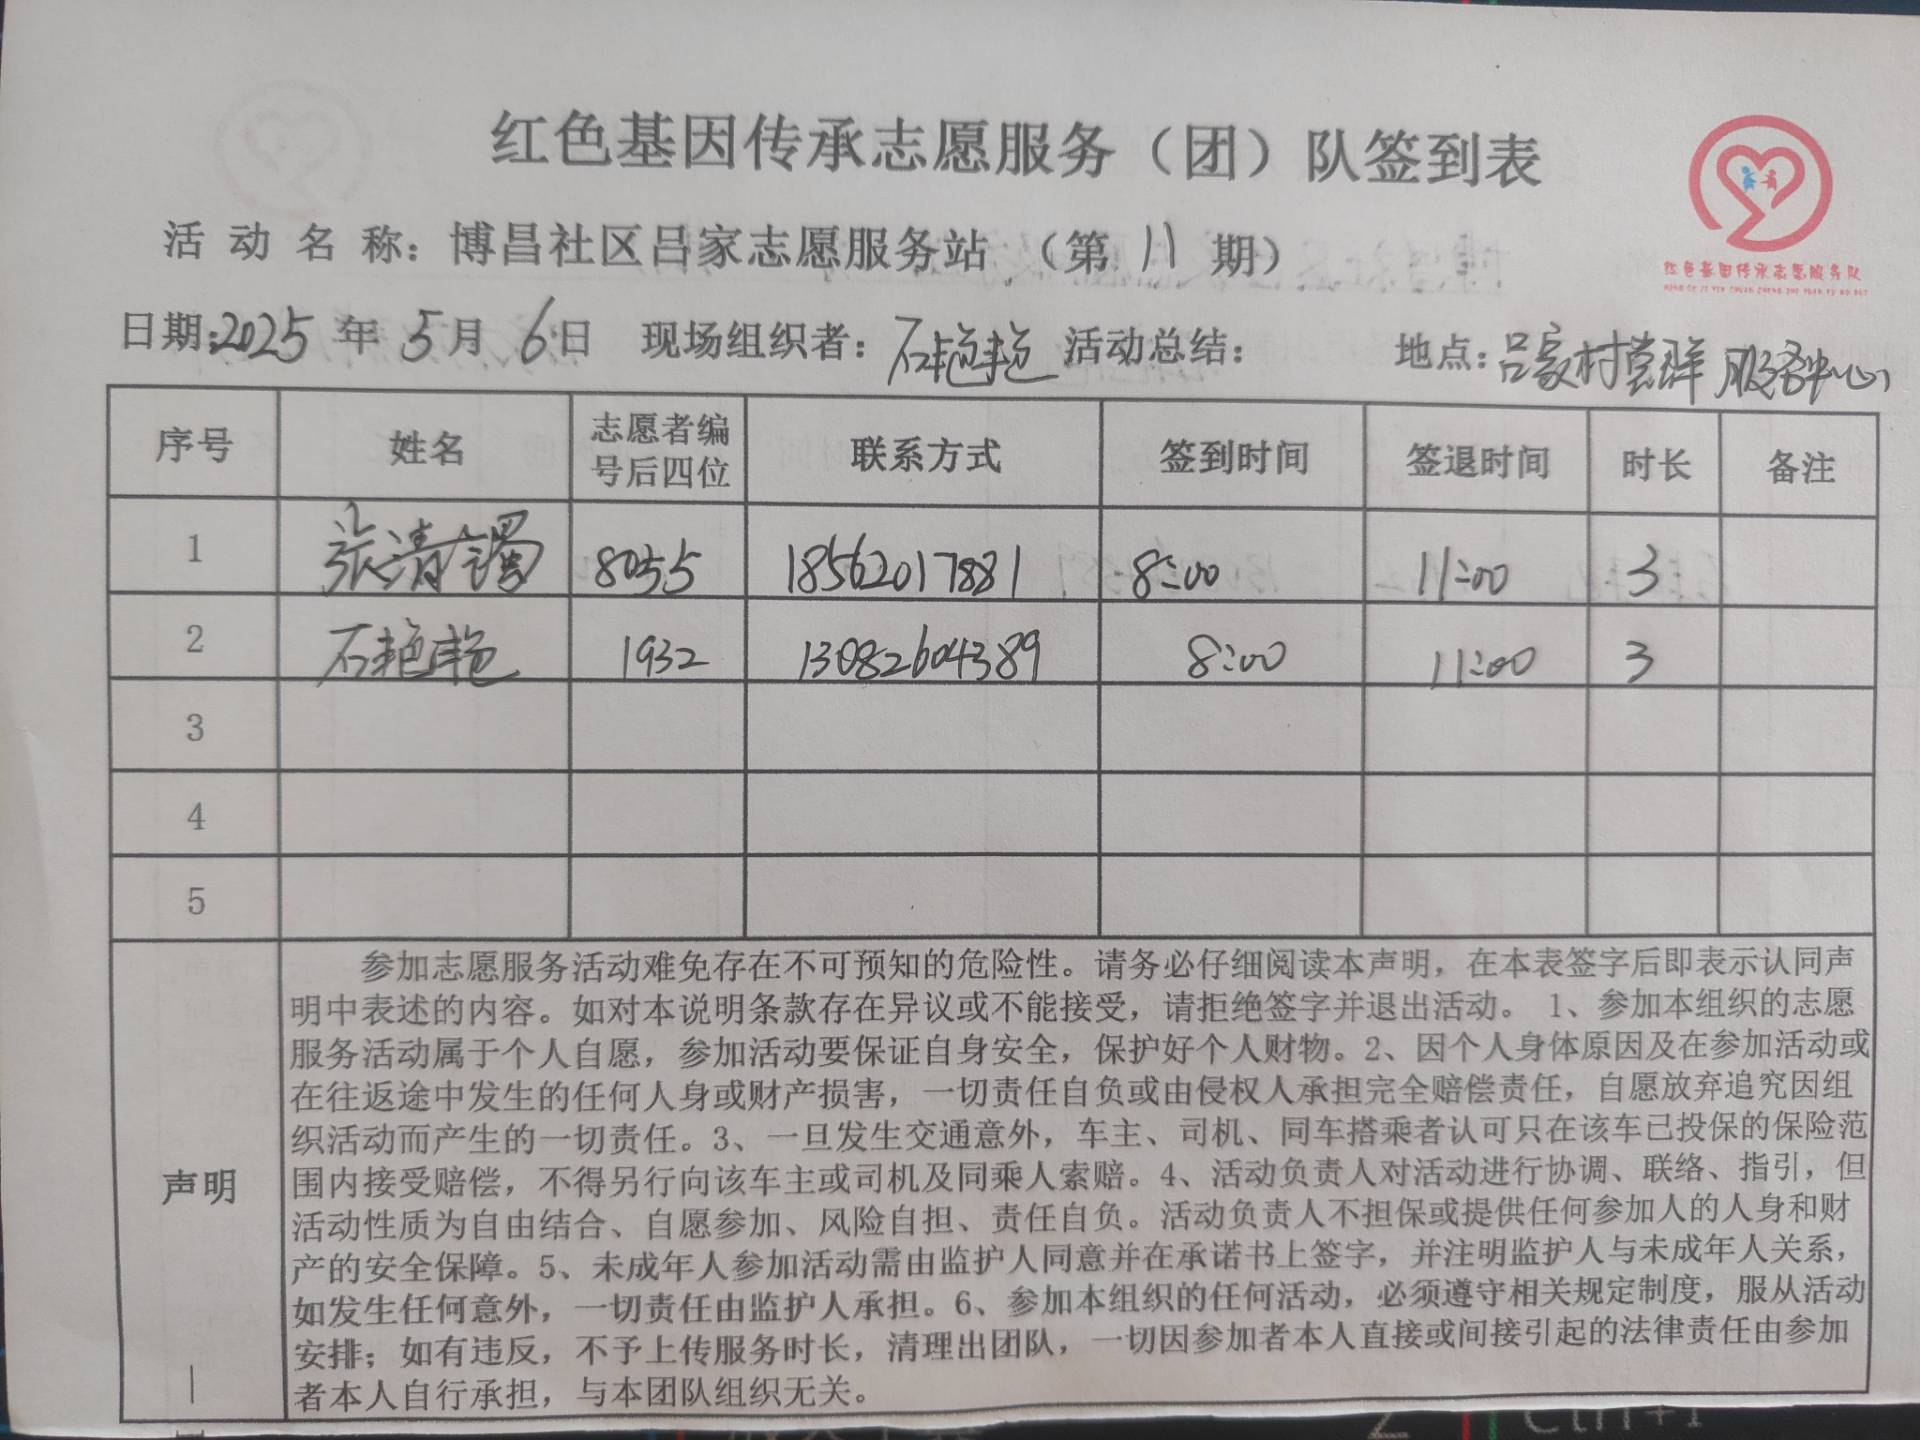 红色基因传承志愿服务（团）队签到表
红色基因传承志愿服务队
HONG SE JI YIN CHUAN CHENG ZHI YUAN FU WU DUI
活动名称：博昌社区吕家志愿服务站（第11期）
日期：2025年5月6日 现场组织者：石艳艳 活动总结： 地点：吕家村党群服务中心
序号 姓名 志愿者编号后四位 联系方式 签到时间 签退时间 时长 备注
1 张清镯 8055 18562017881 8:00 11:00 3
2 石艳艳 1932 13082604389 8:00 11:00 3
3
4
5
声明
参加志愿服务活动难免存在不可预知的危险性。请务必仔细阅读本声明，在本表签字后即表示认同声
明中表述的内容。如对本说明条款存在异议或不能接受，请拒绝签字并退出活动。 1、参加本组织的志愿
服务活动属于个人自愿，参加活动要保证自身安全，保护好个人财物。2、因个人身体原因及在参加活动或
在往返途中发生的任何人身或财产损害，一切责任自负或由侵权人承担完全赔偿责任，自愿放弃追究因组
织活动而产生的一切责任。3、一旦发生交通意外，车主、司机、同车搭乘者认可只在该车已投保的保险范
围内接受赔偿，不得另行向该车主或司机及同乘人索赔。4、活动负责人对活动进行协调、联络、指引，但
活动性质为自由结合、自愿参加、风险自担、责任自负。活动负责人不担保或提供任何参加人的人身和财
产的安全保障。5、未成年人参加活动需由监护人同意并在承诺书上签字，并注明监护人与未成年人关系，
如发生任何意外，一切责任由监护人承担。6、参加本组织的任何活动，必须遵守相关规定制度，服从活动
安排；如有违反，不予上传服务时长，清理出团队，一切因参加者本人直接或间接引起的法律责任由参加
者本人自行承担，与本团队组织无关。